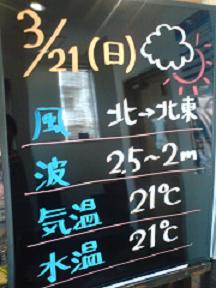 3/21(日)
風 北→北東
波 2.5~2m
気温 21℃
水温 21℃